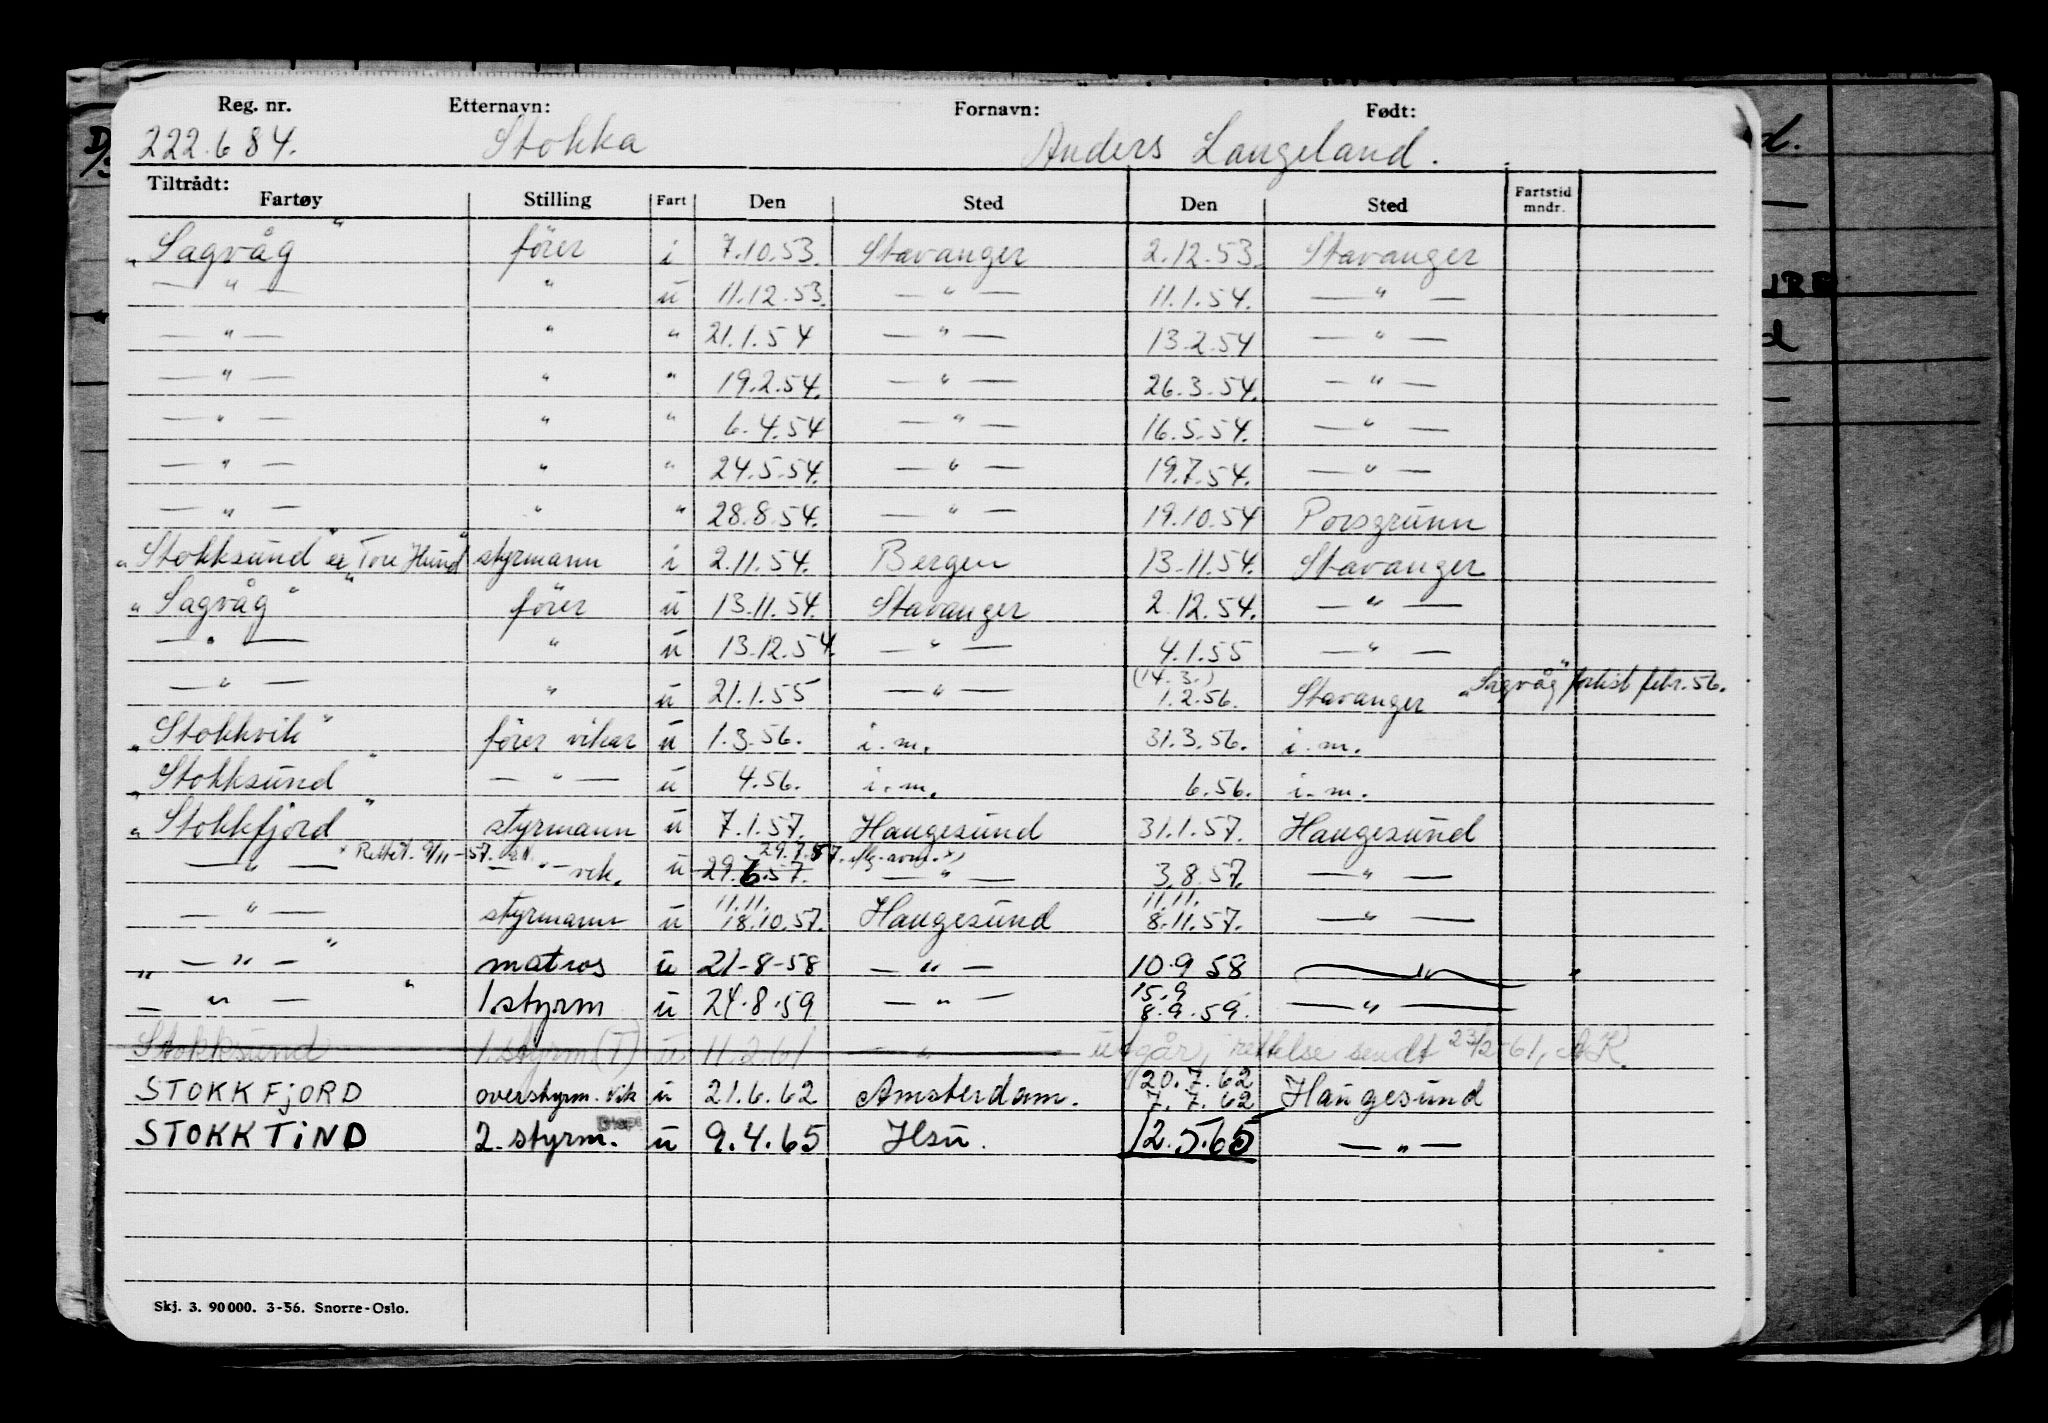 Reg. nr. Etternavn: Fornavn: Født:
222.684. Stokka Anders Langeland.
Tiltrådt:
Fartøy Stilling Fart Den Sted Den Sted Fartstid mndr.
"Sagvåg" fører i 7.10.53. Stavanger 2.12.53. Stavanger
— " — " u 11.12.53. — " — 11.1.54. — " —
— " — " " 21.1.54 — " — 13.2.54 — " —
— " — " " 19.2.54. — " — 26.3.54. — " —
— " — " " 6.4.54 — " — 16.5.54. — " —
— " — " " 24.5.54. — " — 19.7.54. — " —
— " — " " 28.8.54. — " — 19.10.54 Porsgrunn
"Stokksund" ex "Tore Hund" styrmann i 2.11.54. Bergen 13.11.54. Stavanger
"Sagvåg" fører u 13.11.54. Stavanger 2.12.54. — " —
— " — " u 13.12.54. — " — 4.1.55 — " —
— " — " u 21.1.55 — " — (14.3.) 1.2.56. Stavanger "Sagvåg" forlist febr. 56.
"Stokkvik" fører vikar u 1.3.56. i.m. 31.3.56. i.m.
"Stokksund" — " — u 4.56. i.m. 6.56. i.m.
"Stokkfjord" styrmann u 7.1.57. Haugesund 31.1.57. Haugesund
x Rettet. 9/11-57. 29.7.57.
— " — — " — vik. u 29.6.57. — " — 3.8.57. — " —
11.11. 11.11.
— " — styrmann u 18.10.57. Haugesund 8.11.57. — " —
" — " — " matros u 21-8-58 — " — 10.9 58 — " —
15.9
— " — " 1.styrm u 24.8.59 — " — 8.9.59. — " —
Stokksund 1.styrm (T) u 11.2.61 — " — utgår, rettelse sendt 23/2-61, AK.
20.7.62
STOKKFJORD overstyrm. vik u 21.6.62 Amsterdam. 7.7.62 Haugesund
STOKKTIND 2.styrm. Disp. u 9.4.65 Hsu. 12.5.65 — " —
Skj. 3. 90 000. 3-56. Snorre-Oslo.